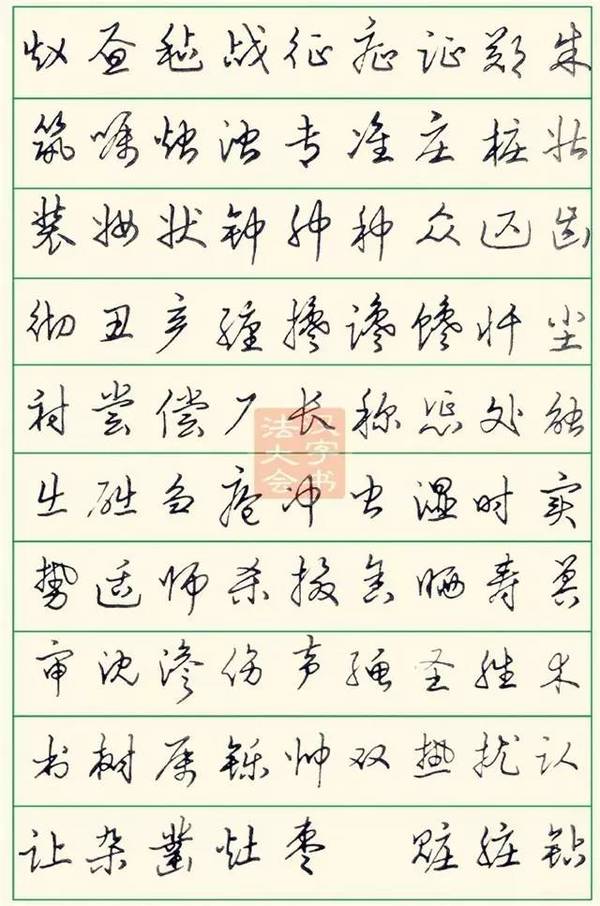 赵昼毡战征症证郑朱
筑嘱烛浊专准庄桩壮
装妆状钟肿种众迟齿
彻丑产缠搀谗馋忏尘
衬尝偿厂长称惩处触
汉字书法大会
出础刍疮冲虫湿时实
势适师杀摄舍晒寿
审沈渗伤声绳圣胜术
书树属铄帅双热扰认
让杂凿灶枣 赃脏钻